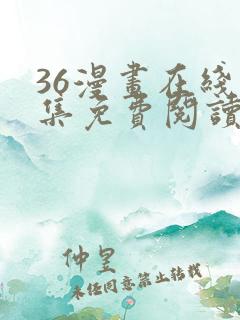 36漫畫在綫
集免費閱讀
仲呈
未经同意禁止转载